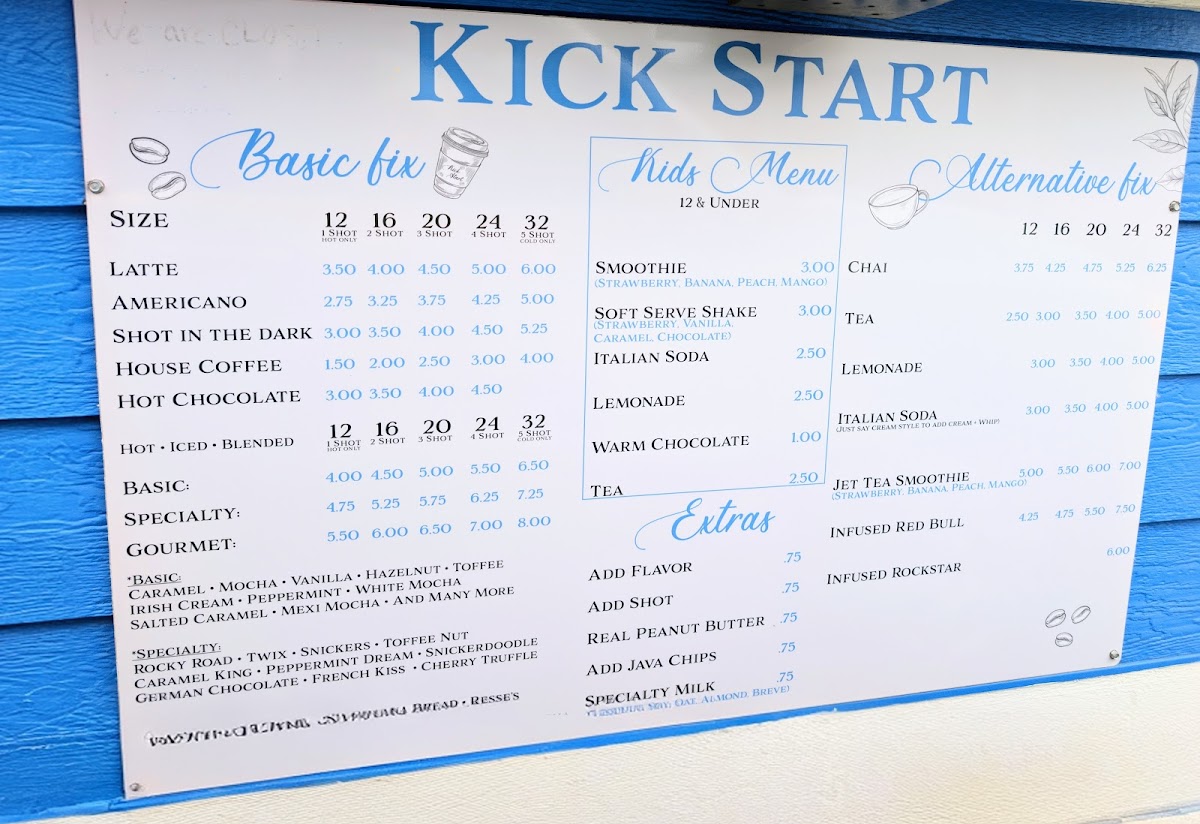 We are CLOS
KICK START
Basic fix
SIZE 12 16 20 24 32
1 SHOT 2 SHOT 3 SHOT 4 SHOT 5 SHOT
HOT ONLY COLD ONLY
LATTE 3.50 4.00 4.50 5.00 6.00
AMERICANO 2.75 3.25 3.75 4.25 5.00
SHOT IN THE DARK 3.00 3.50 4.00 4.50 5.25
HOUSE COFFEE 1.50 2.00 2.50 3.00 4.00
HOT CHOCOLATE 3.00 3.50 4.00 4.50
HOT • ICED • BLENDED 12 16 20 24 32
1 SHOT 2 SHOT 3 SHOT 4 SHOT 5 SHOT
HOT ONLY COLD ONLY
BASIC: 4.00 4.50 5.00 5.50 6.50
SPECIALTY: 4.75 5.25 5.75 6.25 7.25
GOURMET: 5.50 6.00 6.50 7.00 8.00
*BASIC:
CARAMEL • MOCHA • VANILLA • HAZELNUT • TOFFEE
IRISH CREAM • PEPPERMINT • WHITE MOCHA
SALTED CARAMEL • MEXI MOCHA • AND MANY MORE
*SPECIALTY:
ROCKY ROAD • TWIX • SNICKERS • TOFFEE NUT
CARAMEL KING • PEPPERMINT DREAM • SNICKERDOODLE
GERMAN CHOCOLATE • FRENCH KISS • CHERRY TRUFFLE
BREAD • RESSE'S
Kids Menu
12 & UNDER
SMOOTHIE 3.00
(STRAWBERRY, BANANA, PEACH, MANGO)
SOFT SERVE SHAKE 3.00
(STRAWBERRY, VANILLA,
CARAMEL, CHOCOLATE)
ITALIAN SODA 2.50
LEMONADE 2.50
WARM CHOCOLATE 1.00
TEA 2.50
Extras
ADD FLAVOR .75
ADD SHOT .75
REAL PEANUT BUTTER .75
ADD JAVA CHIPS .75
SPECIALTY MILK .75
SOY, OAT, ALMOND, BREVE)
Alternative fix
12 16 20 24 32
CHAI 3.75 4.25 4.75 5.25 6.25
TEA 2.50 3.00 3.50 4.00 5.00
LEMONADE 3.00 3.50 4.00 5.00
ITALIAN SODA 3.00 3.50 4.00 5.00
(JUST SAY CREAM STYLE TO ADD CREAM + WHIP)
JET TEA SMOOTHIE 5.00 5.50 6.00 7.00
(STRAWBERRY, BANANA, PEACH, MANGO)
INFUSED RED BULL 4.25 4.75 5.50 7.50
INFUSED ROCKSTAR 6.00